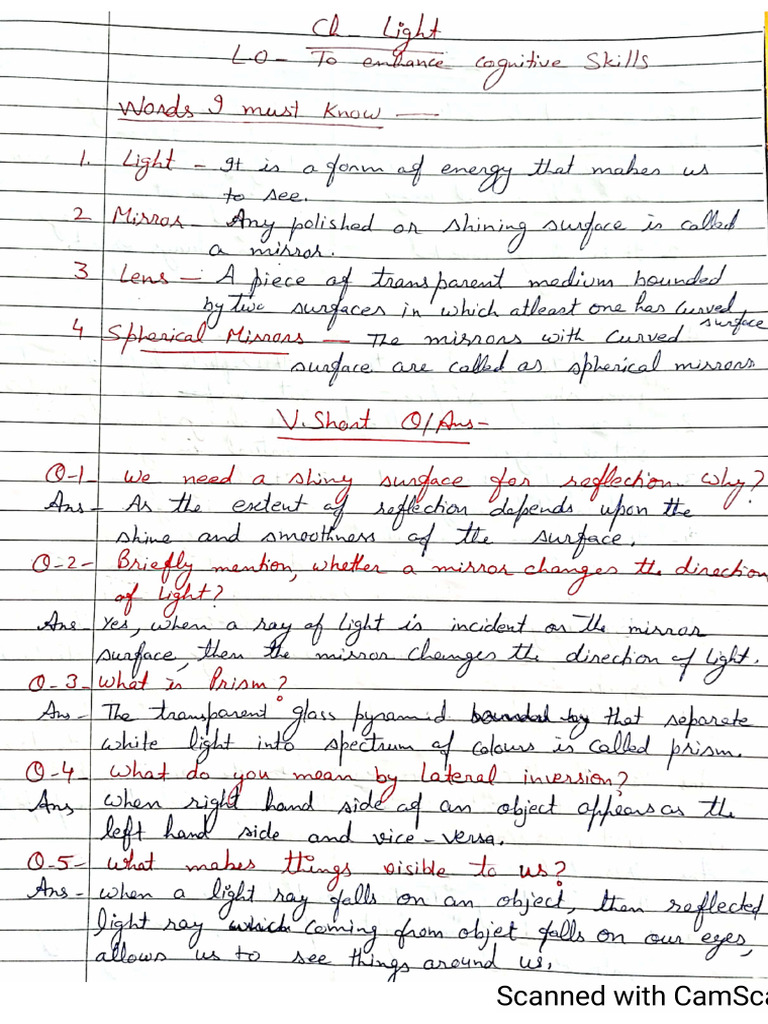 Ch - Light
LO - To enhance cognitive Skills
Words I must Know —
1. Light - It is a form of energy that makes us
to see.
2 Mirror - Any polished or shining surface is called
a mirror.
3 Lens - A piece of transparent medium bounded
by two surfaces in which atleast one has curved
surface
4 Spherical Mirrors — The mirrors with curved
surface are called as spherical mirrors
V. Short Q/Ans-
Q-1 We need a shiny surface for reflection. Why?
Ans- As the extent of reflection depends upon the
shine and smoothness of the surface.
Q-2- Briefly mention, whether a mirror changes the direction
of light?
Ans- Yes, when a ray of light is incident on the mirror
surface, then the mirror changes the direction of light.
Q-3- What is Prism?
Ans- The transparent glass pyramid bounded by that separate
white light into spectrum of colours is called prism.
Q-4- What do you mean by Lateral inversion?
Ans when right hand side of an object appears as the
left hand side and vice-versa.
Q-5- What makes things visible to us?
Ans- when a light ray falls on an object, then reflected
light ray which coming from objet falls on our eyes,
allows us to see things around us.
Scanned with CamSca